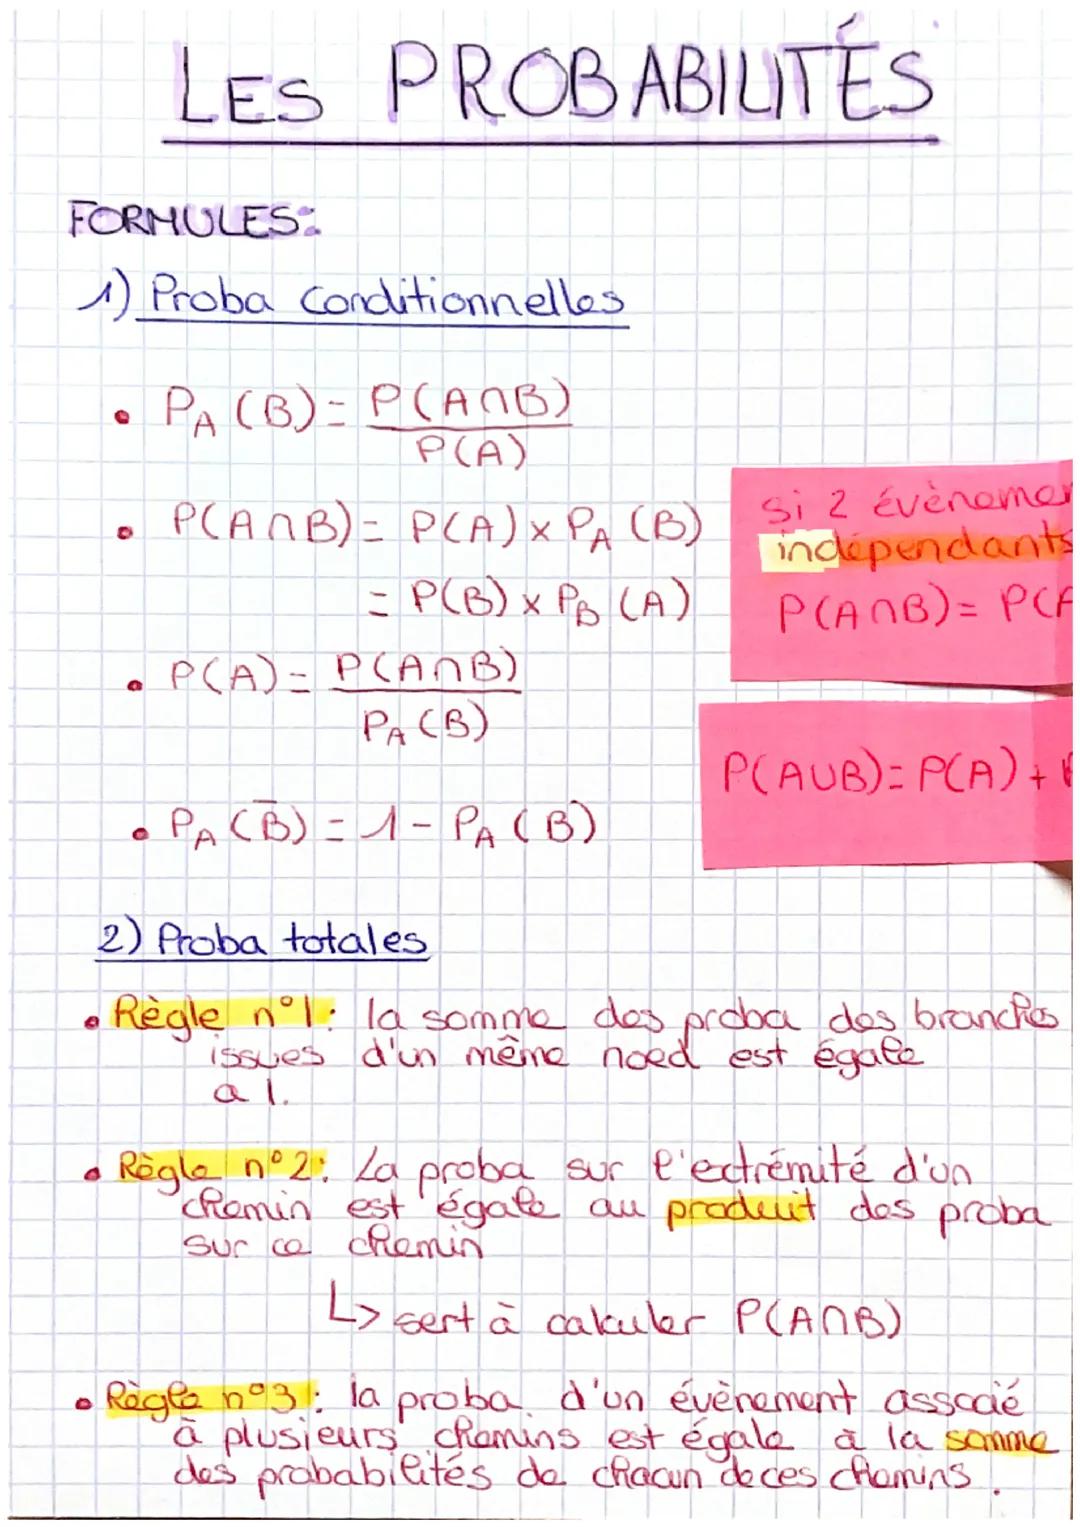 LES PROBABILITÉS
FORMULES:
1) Proba conditionnelles
• PA (B) = P(A∩B)
P(A)
• P(A∩B) = P(A) x PA (B)
= P(B) x PB (A)
• P(A) = P(A∩B)
PA (B)
• PA (B̅) = 1 - PA (B)
si 2 évènemen
indépendants
P(A∩B) = P(A
P(A∪B) = P(A) +
2) Proba totales
• Règle n°1: la somme des proba des branches
issues d'un même noed est égale
a 1.
• Règle n°2: La proba sur l'extrémité d'un
chemin est égale au produit des proba
sur ce chemin
↳ sert à calculer P(A∩B)
• Règle n°3: la proba d'un évènement associé
à plusieurs chemins est égale à la somme
des probabilités de chacun de ces chemins.